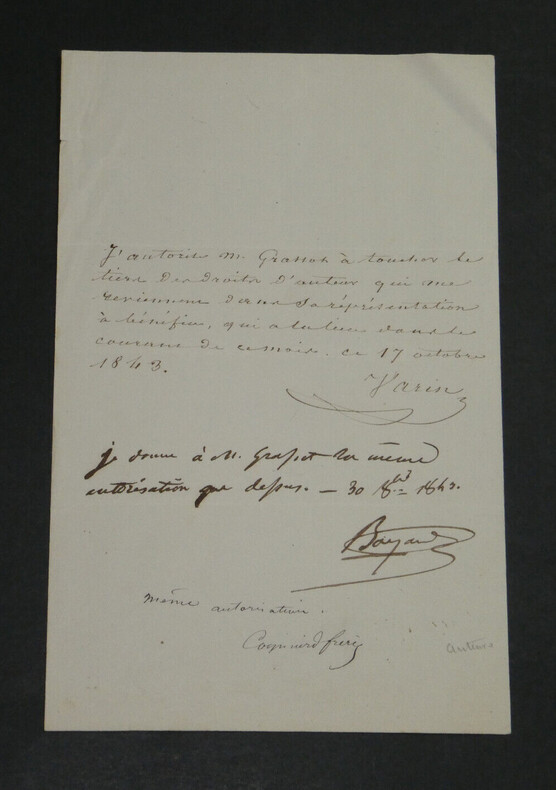 J'autorise M. Grassot à toucher le
tiers des droits d'auteur qui me
reviennent dans sa réprésentation
à bénéfice, qui a eu lieu dans le
courant de ce mois. ce 17 octobre
1843.
Varin
je donne à M. Grassot la même
autorisation que dessus. — 30 8bre 1843.
Bayard
même autorisation.
Cogniard frères